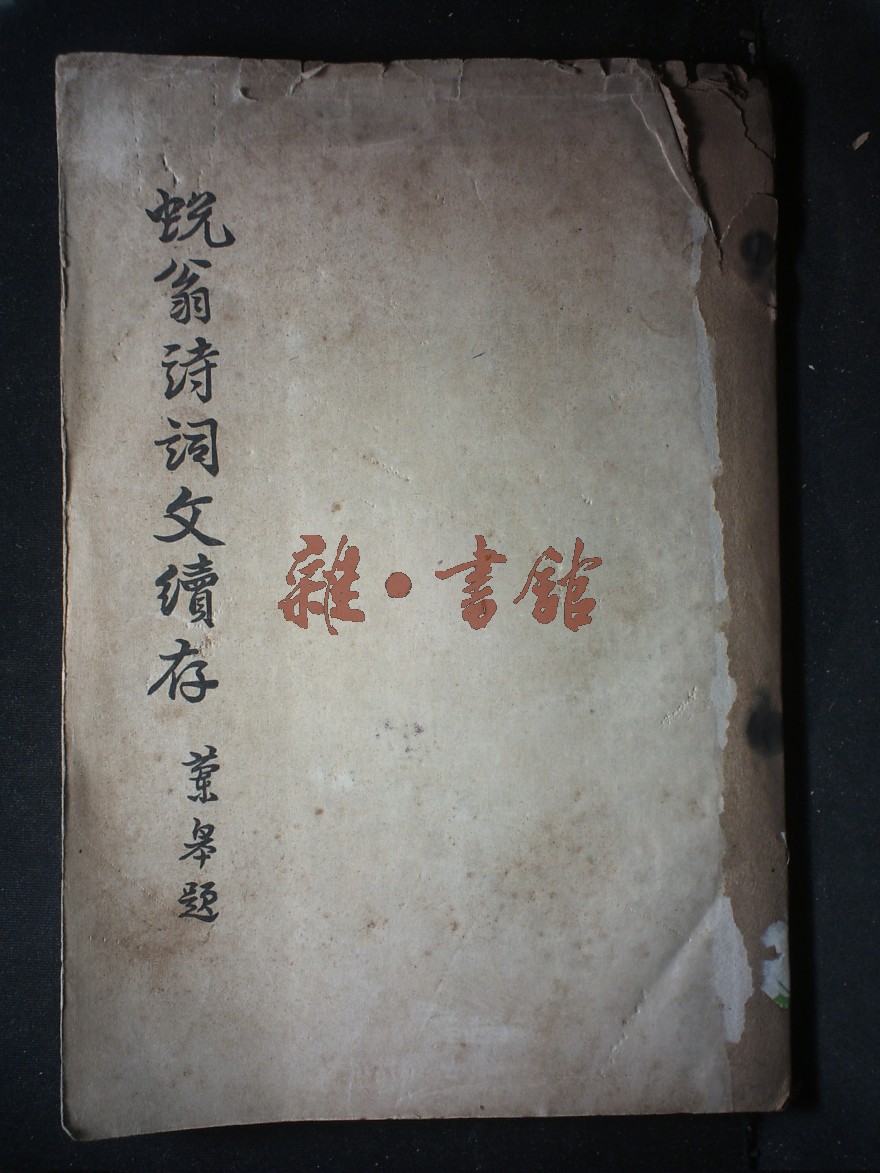 蜕翁詩詞文續存
葉皋題
雜·書館